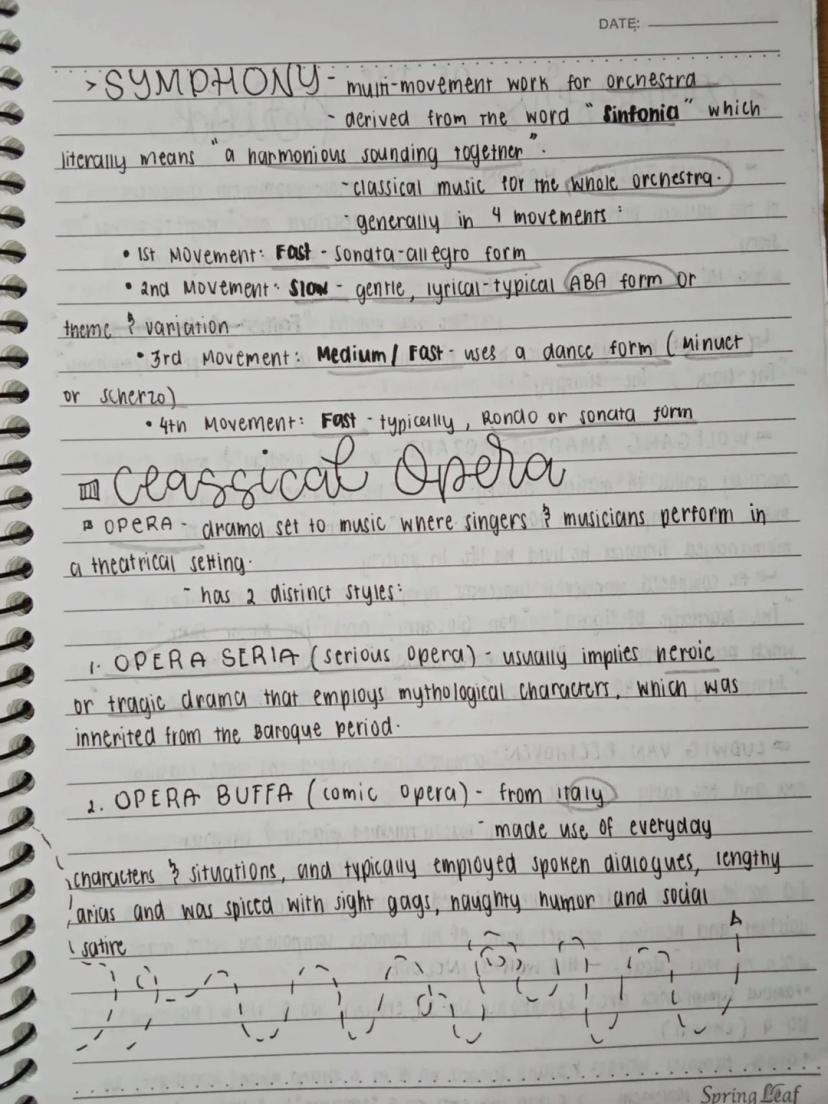 DATE:
> SYMPHONY - multi-movement work for orchestra
- derived from the word "Sinfonia" which
literally means "a harmonious sounding together".
- classical music for the whole orchestra.
- generally in 4 movements:
• 1st Movement: Fast - sonata-allegro form
• 2nd Movement: Slow - gentle, lyrical-typical ABA form or
theme & variation
• 3rd Movement: Medium / Fast - uses a dance form (minuet
or scherzo)
• 4th Movement: Fast - typically, Rondo or sonata form
III Classical Opera
OPERA - drama set to music where singers & musicians perform in
a theatrical setting.
- has 2 distinct styles:
1. OPERA SERIA (serious opera) - usually implies heroic
or tragic drama that employs mythological characters, which was
inherited from the Baroque Period.
2. OPERA BUFFA (comic opera) - from italy
- made use of everyday
characters & situations, and typically employed spoken dialogues, lengthy
arias and was spiced with sight gags, naughty humor and social
satire
Spring Leaf